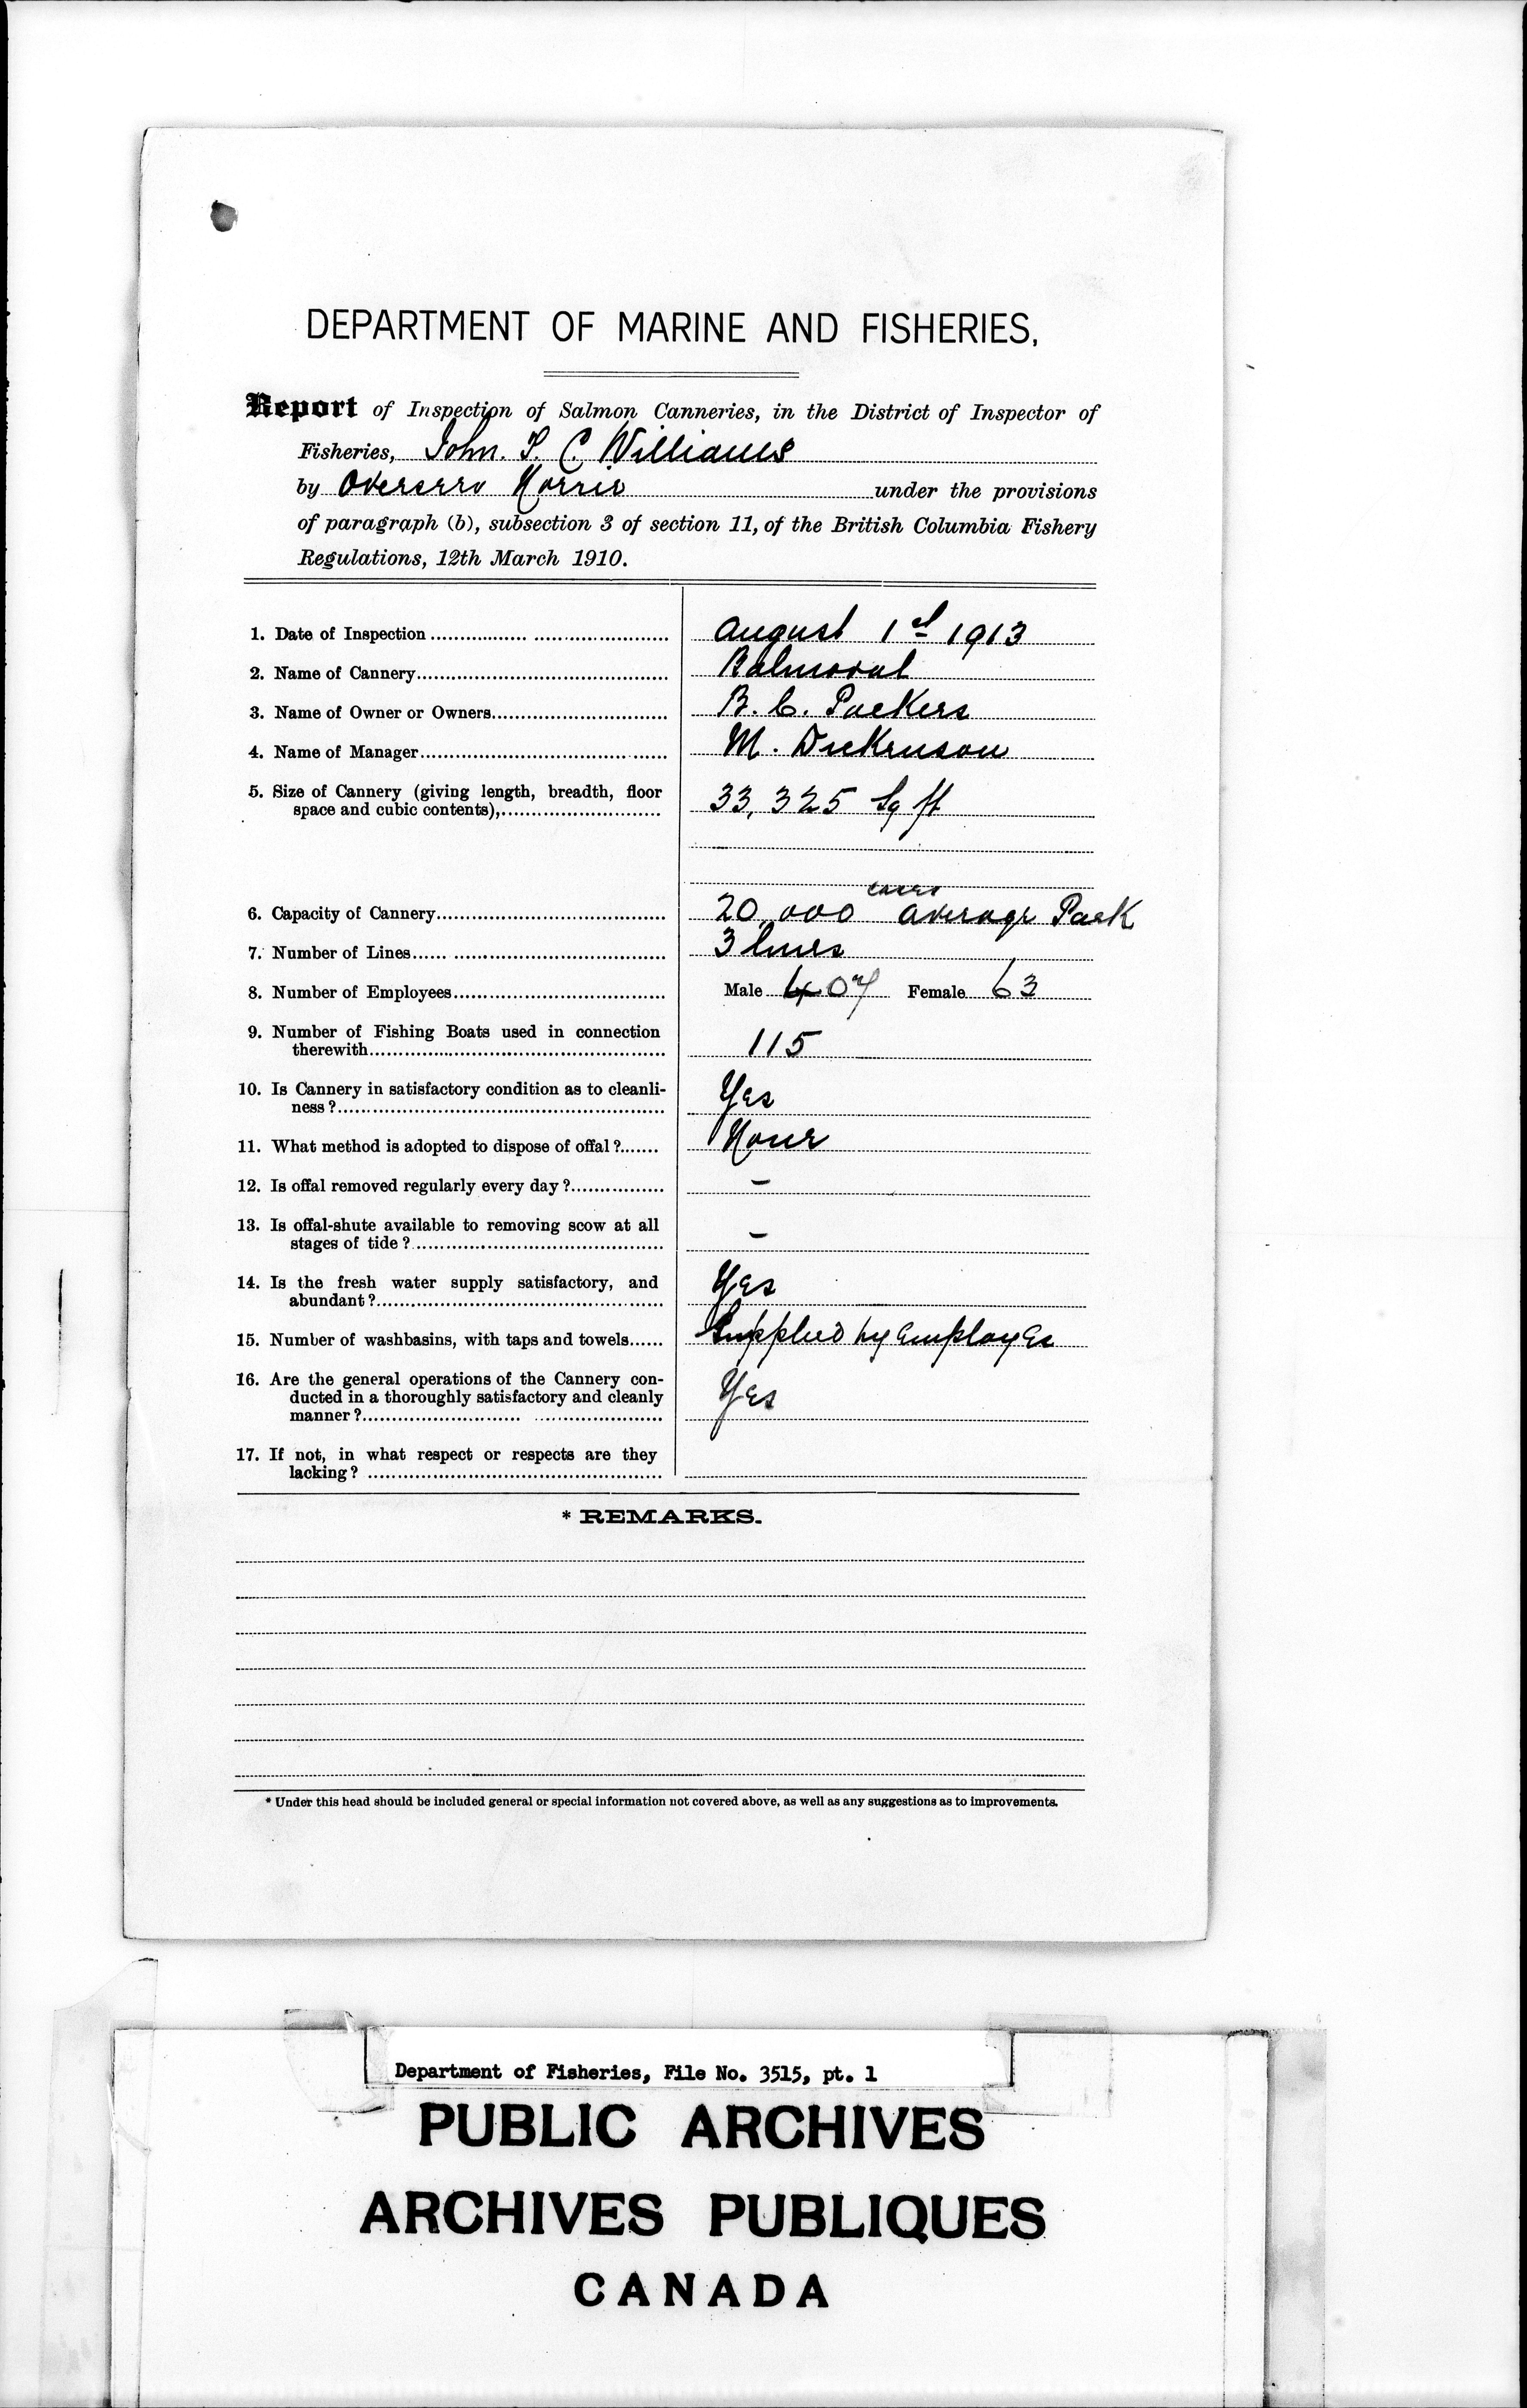 DEPARTMENT OF MARINE AND FISHERIES,
Report of Inspection of Salmon Canneries, in the District of Inspector of
Fisheries, John. T. C. Williams
by Overseer Norris under the provisions
of paragraph (b), subsection 3 of section 11, of the British Columbia Fishery
Regulations, 12th March 1910.
1. Date of Inspection August 1st 1913
2. Name of Cannery Balmoral
3. Name of Owner or Owners B. C. Packers
4. Name of Manager M. Dickenson
5. Size of Cannery (giving length, breadth, floor
space and cubic contents), 33,325 Sq ft
cases
6. Capacity of Cannery 20,000 average Pack
7. Number of Lines 3 lines
8. Number of Employees Male 407 Female 63
9. Number of Fishing Boats used in connection
therewith 115
10. Is Cannery in satisfactory condition as to cleanli-
ness? Yes
11. What method is adopted to dispose of offal? None
12. Is offal removed regularly every day? –
13. Is offal-shute available to removing scow at all
stages of tide? –
14. Is the fresh water supply satisfactory, and
abundant? Yes
15. Number of washbasins, with taps and towels Supplied by Employes
16. Are the general operations of the Cannery con-
ducted in a thoroughly satisfactory and cleanly
manner? Yes
17. If not, in what respect or respects are they
lacking?
* REMARKS.
* Under this head should be included general or special information not covered above, as well as any suggestions as to improvements.
Department of Fisheries, File No. 3515, pt. 1
PUBLIC ARCHIVES
ARCHIVES PUBLIQUES
CANADA